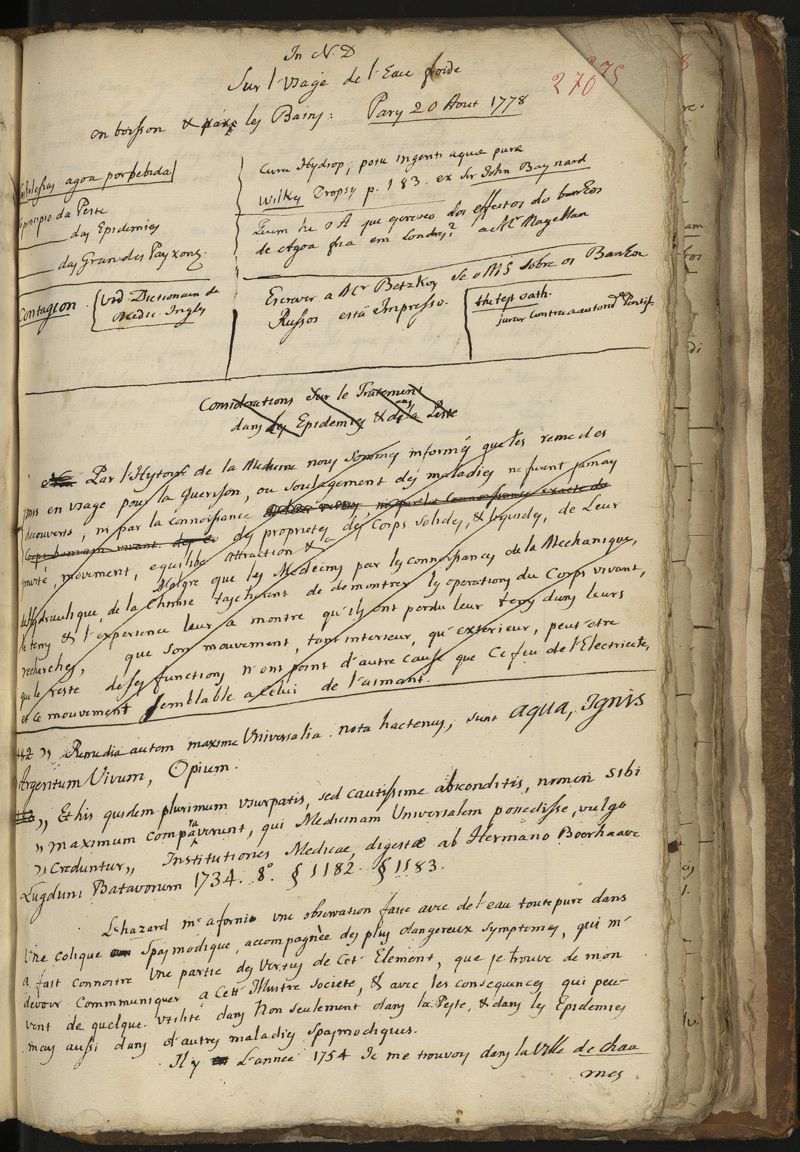 In N. D
Sur l'usage de l'Eau froide
276 75
en boisson & les Bains: Pary 20 Aout 1778
agoa porbebida
Principio da Peste
das Epidemies
das Grandes Payxons.
Contagion. (vid. Dictionaire de
Medic. Ingles
Cura Hydrop; potu ingenti aquæ puræ
Wilkes Dropsy p. 183. ex Sir John Baynard
Quem he o A que escreveo dos effeitos do
de Agoa fria em Londres? a Mr. Magellan
Escrever a Mr Betzkoy se o MS sobre os Banhos
Russos está Impresso.
the test oath.
jurar contra a autorid.e Pontif.
Considerations sur le Traitement
dans les Epidemies & de la Peste
Par l'Hystoire de la Medecine nous sommes informés que les remedes
mis en usage pour la Guerison, ou soulagement des maladies ne furent jamays
decouverts, ni par la connoissance
Corps humain vivant des proprietes des Corps solides, & liquides, de Leur
gravité, movement, equilibe attraction &a
Malgre que les Medecins par les connoissances de la Mechanique,
de Hydraulique, de la Chimie tacherent de demontrer les operations du Corps vivant,
le tems & l'experience leur a montre qu'ils ont perdu leur tems dans leurs
recherches, que son mouvement, tant interieur, qu'exterieur, peut etre
que le reste de ses functions n'ont point d'autre cause que Ce feu de l'Electricite,
et ce mouvement semblable a celui de l'aimant.
" Remedia autem maxime Universalia nota hactenus, sunt aqua, Ignis
Argentum Vivum, Opium.
" Et his quidem plurimum usurpatis, sed cautissime absconditis, nomen sibi
" maximum compararunt, qui Medicinam Universalem possedisse, vulgo
" Creduntur" Institutiones Medicae, digestæ ab Hermano Boerhaave
Lugduni Batavorum 1734. 8°. § 1182. § 1183.
Le hazard m'a forni une observation faite avec de l'eau toute pure dans
Une colique Spasmodique, accompagnée des plus dangereux symptomes, qui m'
a fait connoitre Une partie des Vertus de Cet Element, que je trouve de mon
devoir Communiquer a Cette Illustre Societe, & avec les consequences qui peu-
vent de quelque utilité dans Non seulement dans la Peste, & dans les Epidemies
mays aussi dans d'autres maladies spasmodiques.
Il y L'année 1754 Je me trouvoy dans la Ville de Chau
mes